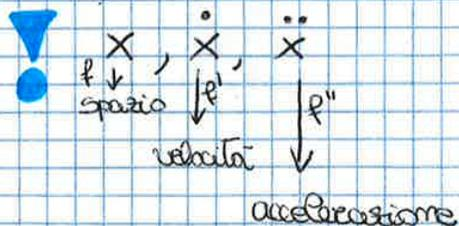 x , ẋ , ẍ
f ↓ ↓ f' ↓ f''
spazio
velocità
accelerazione